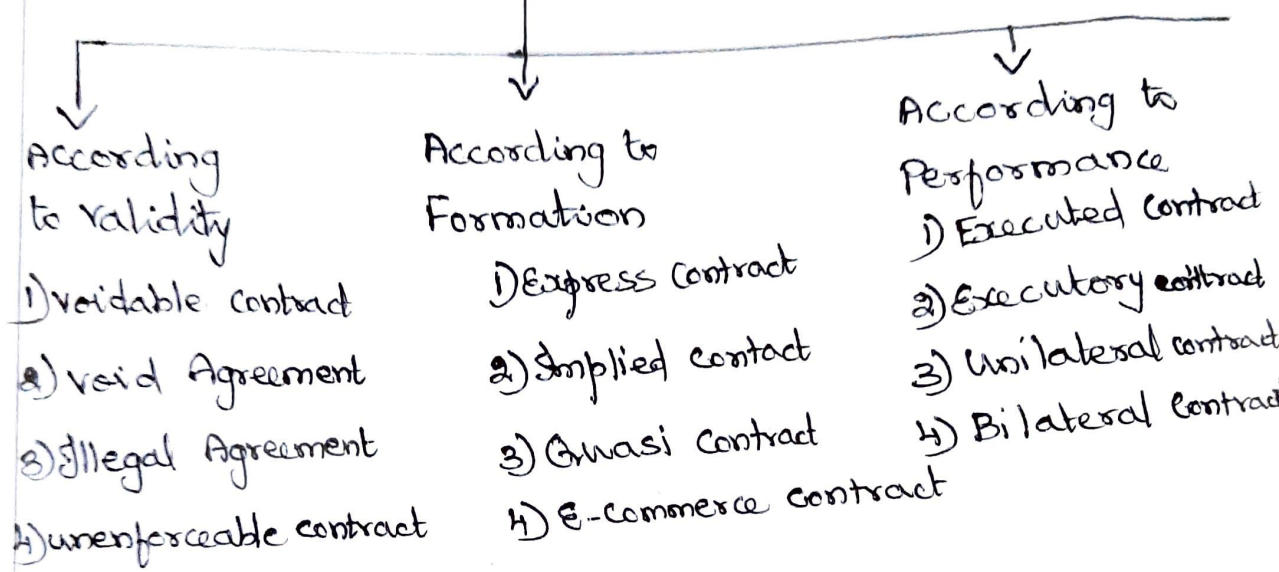 According
to validity
1) voidable contract
2) void Agreement
3) Illegal Agreement
4) unenforceable contract
According to
Formation
1) Express contract
2) Implied contact
3) Quasi contract
4) E-commerce contract
According to
Performance
1) Executed contract
2) Executory contract
3) Unilateral contract
4) Bilateral contract